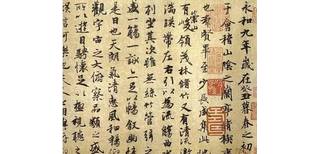 永和九年歲在癸丑暮春之初
于會稽山陰之蘭亭脩稧
也羣賢畢至少長咸集此
有崇山峻領茂林脩竹又有清
湍暎帶左右引以為流觴曲
列坐其次雖無絲竹管弦
盛一觴一詠亦足以暢敘幽
是日也天朗氣清惠風和暢
觀宇宙之大俯察品類之盛
所以遊目騁懷足以極視聽